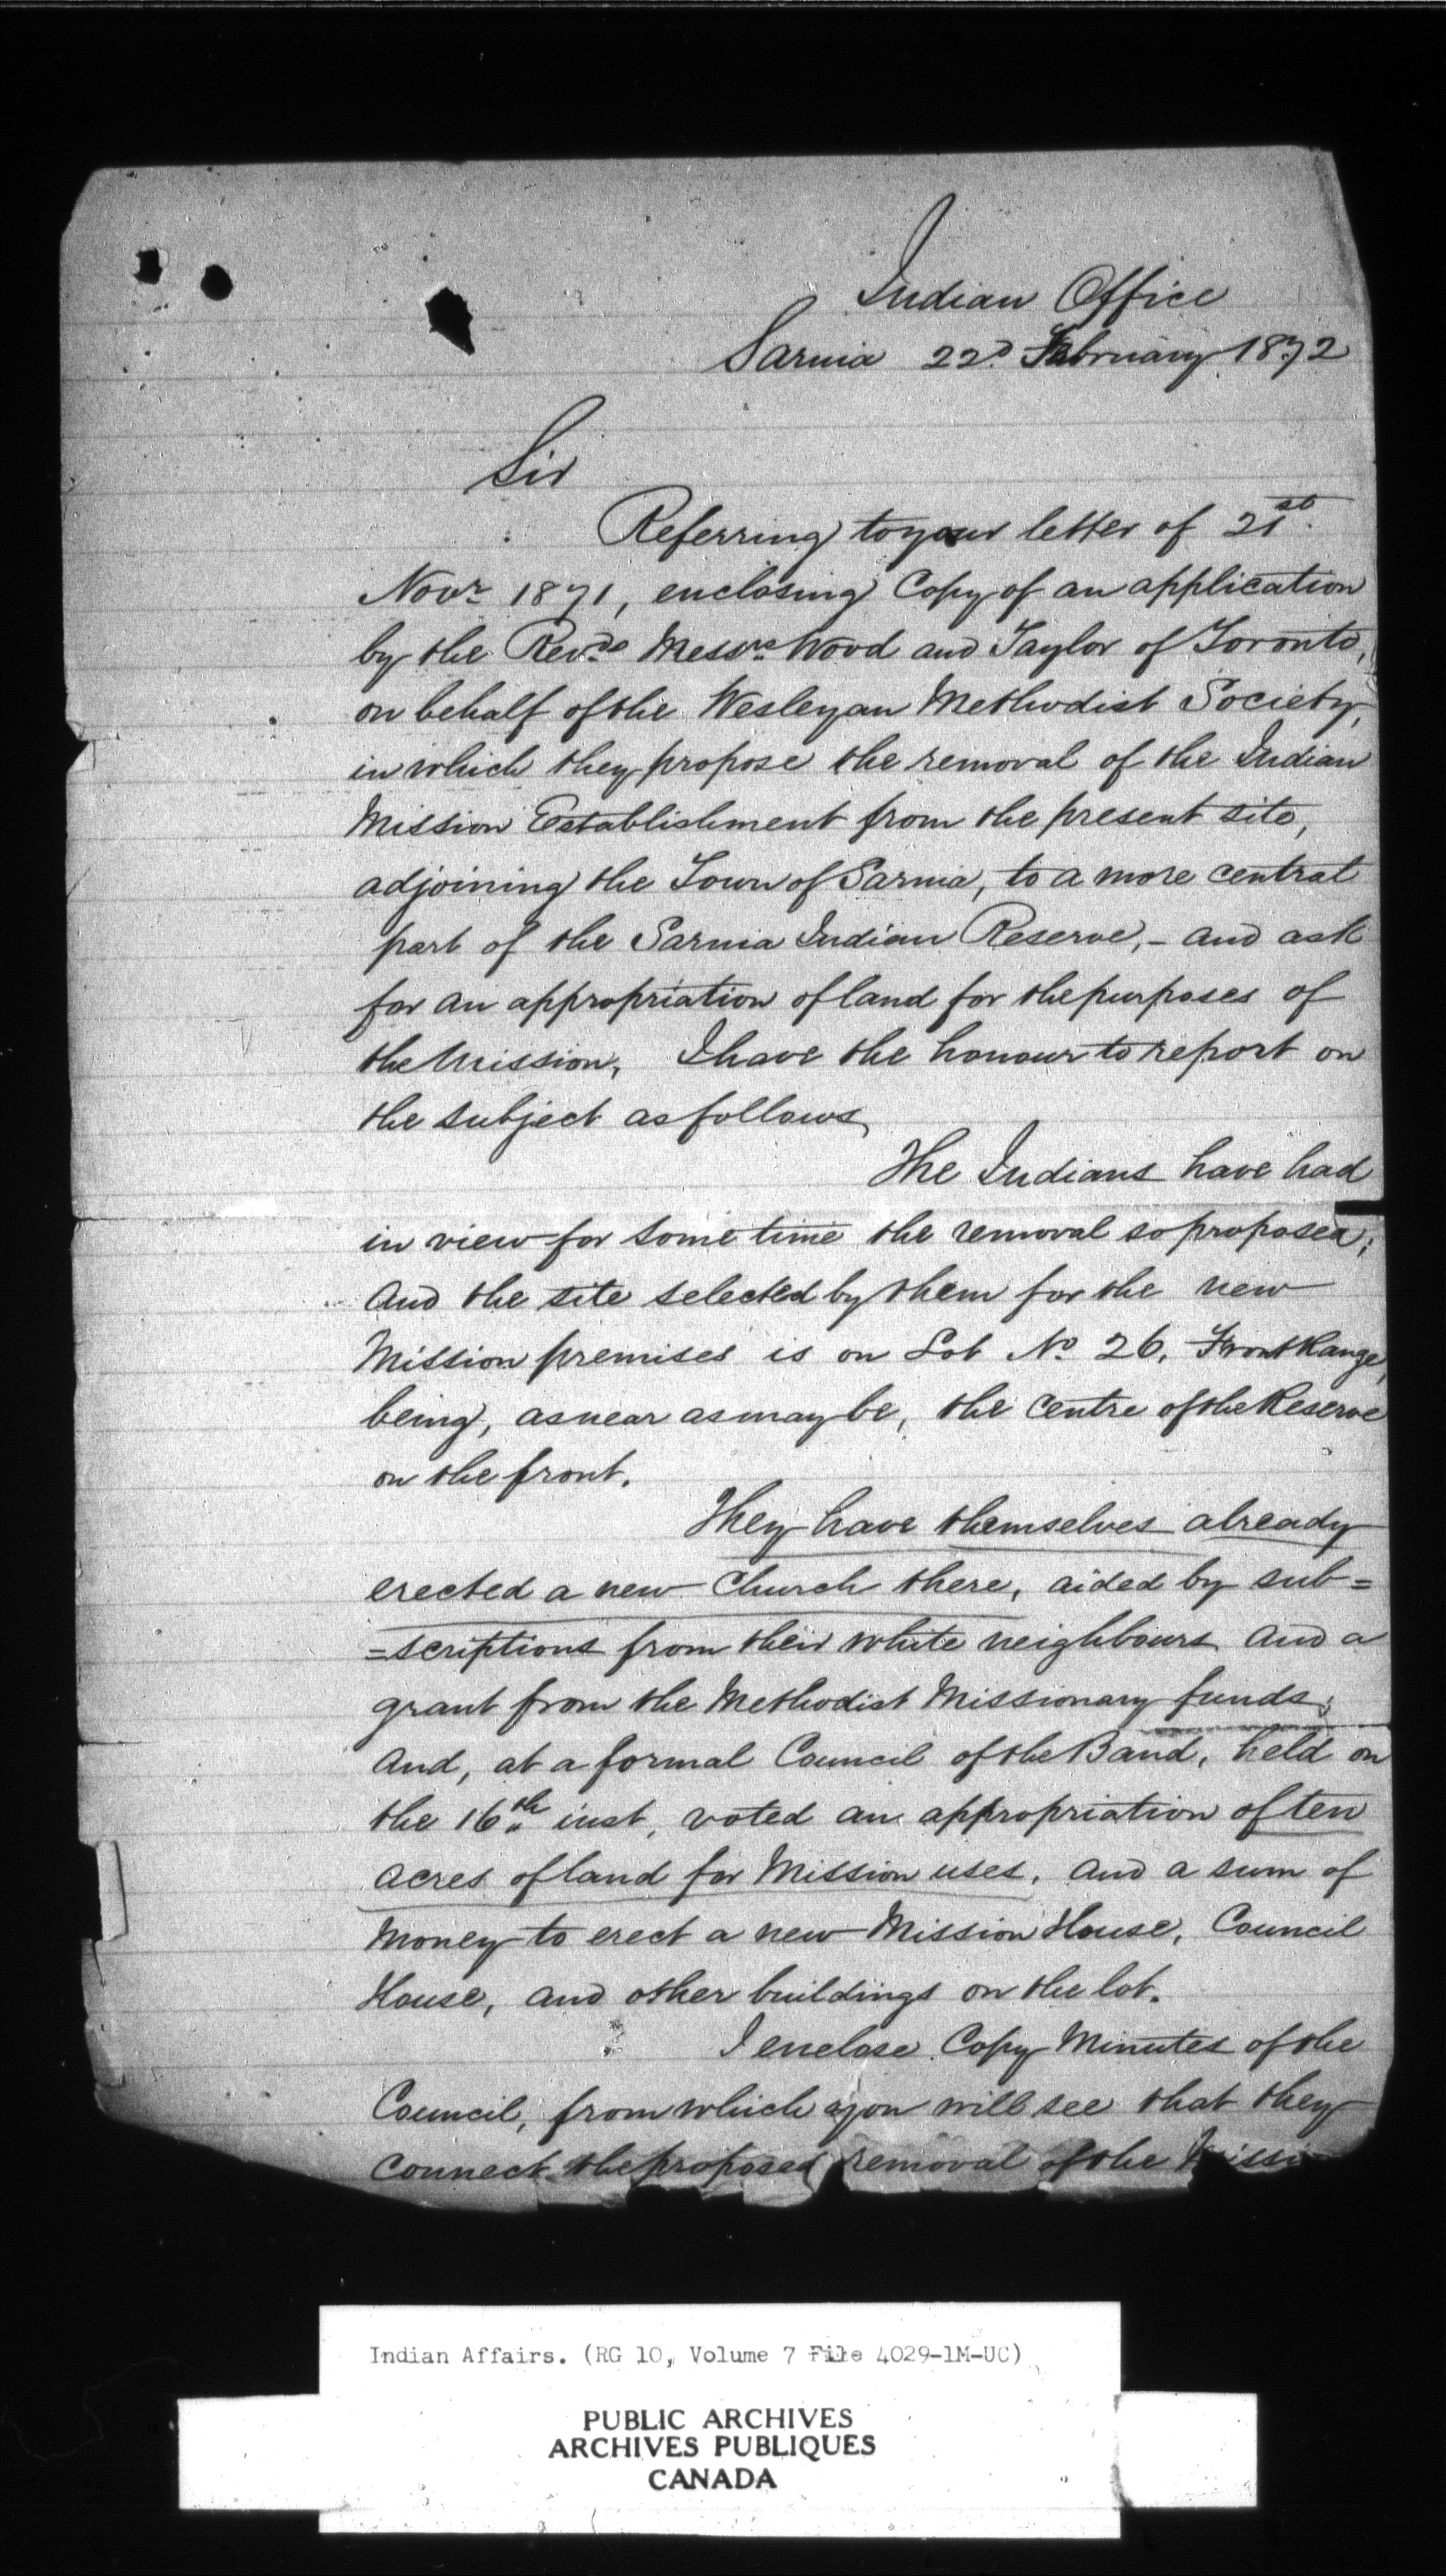 Indian Office
Sarnia 22d. February 1872
Sir
Referring to your letter of 21st.
Novr. 1871, enclosing Copy of an application
by the Revds. Messrs. Wood and Taylor of Toronto,
on behalf of the Wesleyan Methodist Society,
in which they propose the removal of the Indian
Mission Establishment from the present site,
adjoining the Town of Sarnia, to a more central
part of the Sarnia Indian Reserve, - and ask
for an appropriation of land for the purposes of
the Mission, I have the honour to report on
the subject as follows,
The Indians have had
in view for some time the removal so proposed;
and the site selected by them for the new
Mission premises is on Lot No. 26, Front Range,
being, as near as may be, the centre of the Reserve
on the front.
They have themselves already
erected a new Church there, aided by sub=
=scriptions from their white neighbours and a
grant from the Methodist Missionary funds;
and, at a formal Council of the Band, held on
the 16th. inst, voted an appropriation of ten
acres of land for Mission uses, and a sum of
money to erect a new Mission House, Council
House, and other buildings on the lot.
I enclose Copy Minutes of the
Council, from which you will see that they
connect the proposed removal of the Missi
Indian Affairs. (RG 10, Volume 7 File 4029-1M-UC)
PUBLIC ARCHIVES
ARCHIVES PUBLIQUES
CANADA